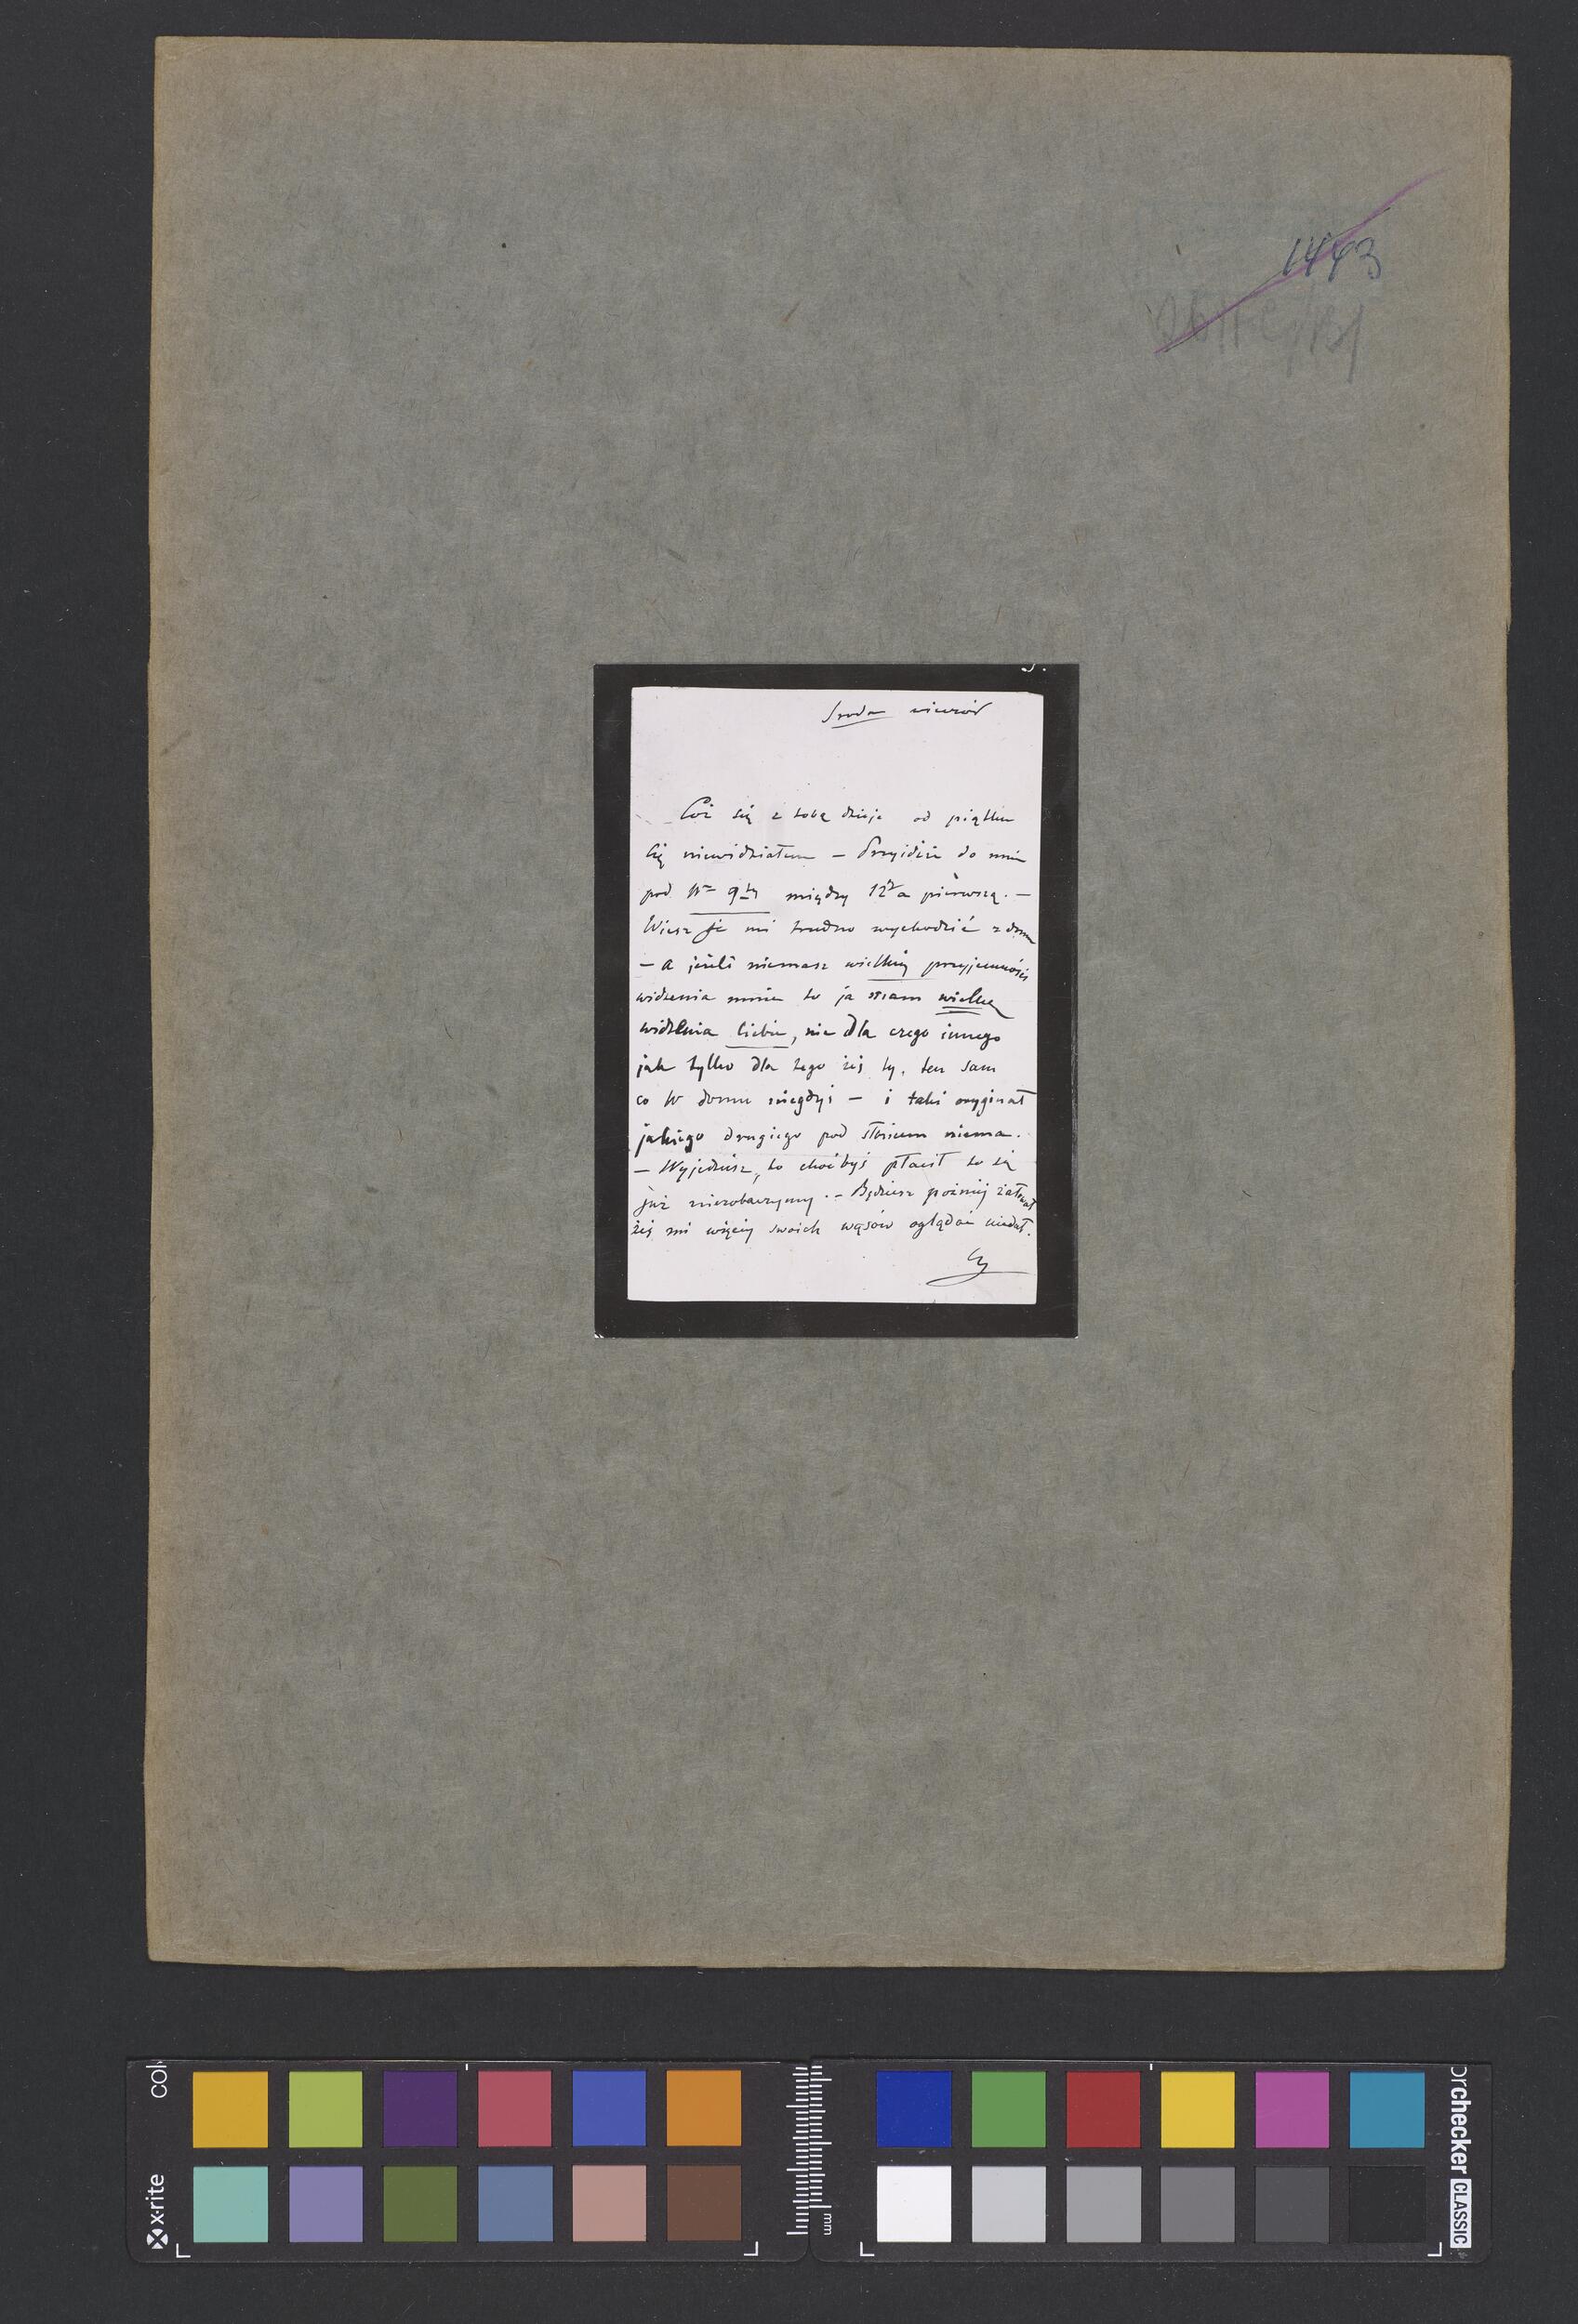 1443
Sroda wieczór
Cóż się z tobą dzieje od piątku
Cię niewidziałem — Przyidźie do mnie
pod Nr 9ty między 12 a pierwszą. —
Wiesz że mi trudno wychodzić z domu
— a jeżeli niemasz wielkiej przyjemności
widzenia mnie to ja mam wielką
widzenia Ciebie, nie dla czego innego
jak tylko dla tego żeś ty, ten sam
co w domu niegdyś — i taki oryginał
jakiego drugiego pod słońcem niema.
— Wyjedziesz, to choćbyś płacił to się
już niezobaczymy. — Będziesz pożniej żałował
żeś mi więcej swoich wąsów oglądać niedał.
x-rite
colorchecker CLASSIC
mm